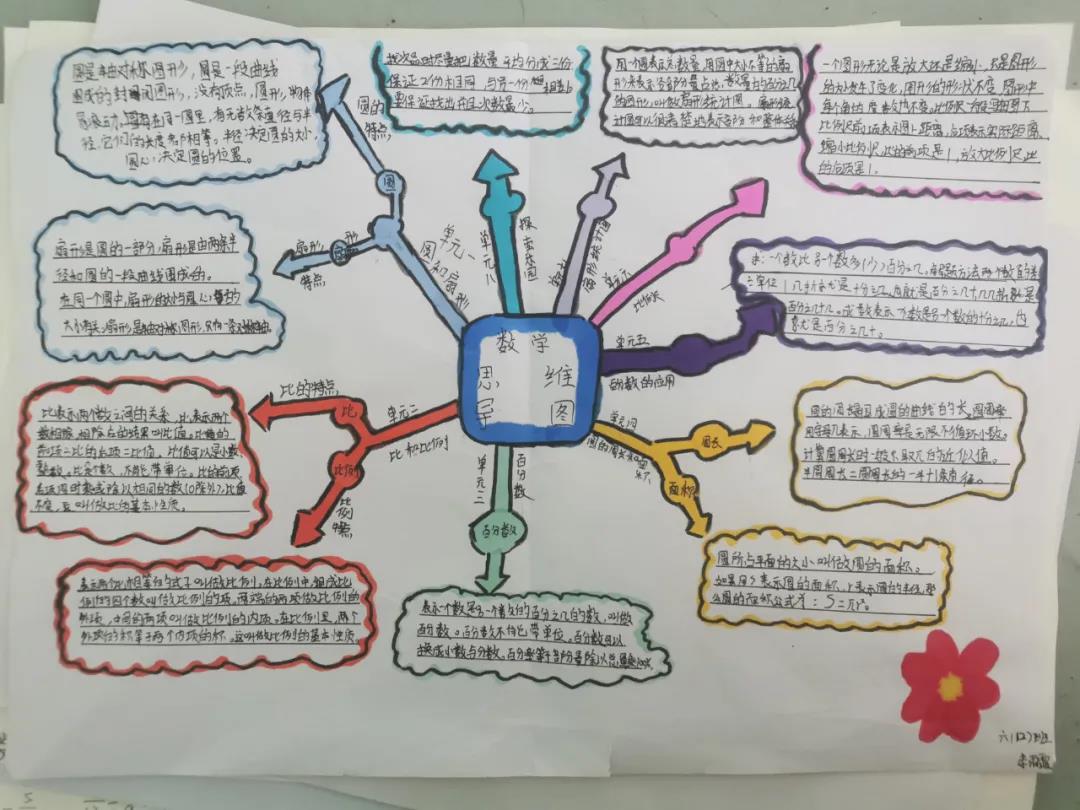 数学
思维
导图
单元一
圆和扇形
圆
圆的特点
圆是轴对称图形，圆是一段曲线
围成的封闭图形，没有顶点，
同一圆里，有无数条直径与半
径，它们的长度都相等。半径决定圆的大小
圆心决定圆的位置。
扇形
扇形
特点
扇形是圆的一部分，扇形是由两条半
径和圆的一段曲线围成的。
在同一个圆中，扇形的大小与圆心角的
大小有关，扇形是轴对称图形，只有一条对称轴。
单元二
比和比例
比
比的特点
比表示两个数之间的关系，比表示两个
数相除，相除后的结果叫比值。
前项÷比的后项=比值。比值可以是小数、
整数、分数，不能带单位。比的前项、
后项同时乘或除以相同的数(0除外)，比值
不变，这叫做比的基本性质。
比例
比例
特点
表示两个比相等的式子叫做比例，在比例中，组成比
例的四个数叫做比例的项，两端的两项做比例的
外项，中间的两项叫做比例的内项。在比例里，两个
外项的积等于两个内项的积。这叫做比例的基本性质。
单元三
百分数
百分数
表示一个数是另一个数的百分之几的数，叫做
百分数。百分数不能带单位，百分数可以
换成小数与分数，百分率等于部分量除以总量
单元四
圆的周长和面积
周长
圆的周长是围成圆的曲线的长，圆周率
用字母π表示，圆周率是无限不循环小数。
计算圆周长时一般只取它的近似值。
半圆周长=圆周长的一半+1条直径。
面积
圆所占平面的大小叫做圆的面积。
如果用S表示圆的面积，r表示圆的半径，那
么圆的面积公式为：S=πr²。
单元五
百分数的应用
求：一个数比另一个数多(少)百分之几，
几折就是十分之几，
百分之几十几。成数表示一个数是另一个数的十分之几，也
就是百分之几十。
单元六
比例尺
一个图形无论是放大还是缩小，只是图形
的大小发生了变化，图形的形状不变，图形中
每个角的度数也不变。
比例尺前项表示图上距离，后项表示实际距离，
缩小比例尺，比的前项是1，放大比例尺，比
的后项是1。
扇形统计图
用一个圆表示总数量，用圆中大小不等的扇
形来表示各部分量占总数量的百分之几
的图形，叫做扇形统计图。扇形统
计图可以很清楚地表示各部分和整体
单元八
探索乐园
找次品时尽量把数量平均分成三份
保证2份相同，与另一份相差1
要保证找出并且次数最少。
六(12)班